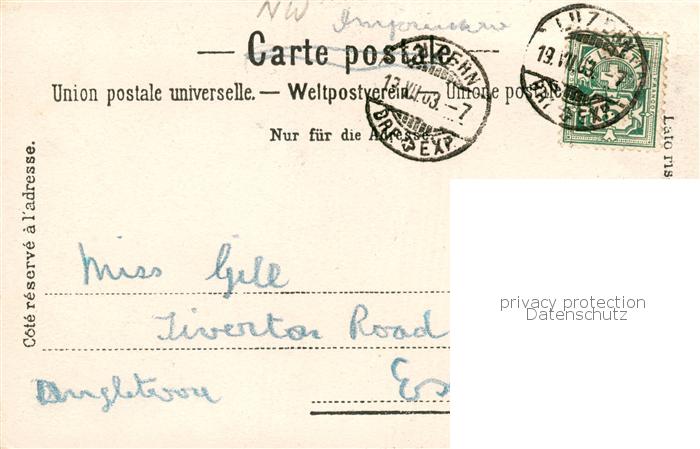 NW
— Carte postale —
Union postale universelle. — Weltpostverein. — Unione postale
Nur für die Adresse.
BERN
19.VII.03.–7
BRF. EXP.
LUZERN
19.VII.03.–7
BRF. EXP.
Côté réservé à l'adresse.
Lato ris
Miss Gill
Tiverton Road
Es
privacy protection
Datenschutz